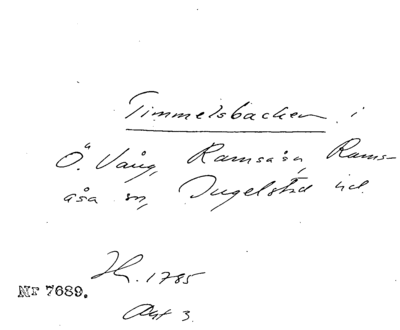 Timmelsbacken i
Ö. Vång, Ramsåsa, Rams-
åsa sn, Ingelstad hd.
H. 1785
Nr 7689.
Akt 3.